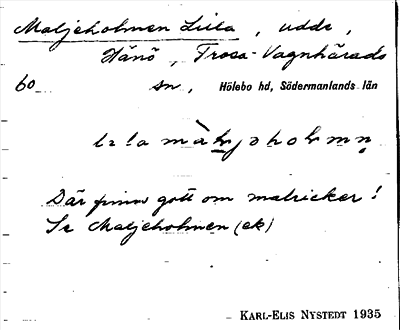 Maljeholmen Lilla, udde,
Hånö, Trosa-Vagnhärads
60 sn, Hölebo hd, Södermanlands län
Där finns gott om matricker!
Se Maljeholmen (ek)
KARL-ELIS NYSTEDT 1935